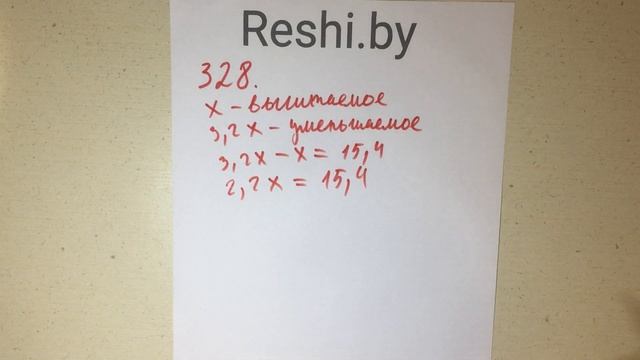 Reshi.by
328.
x – вычитаемое
3,2x – уменьшаемое
3,2x – x = 15,4
2,2x = 15,4